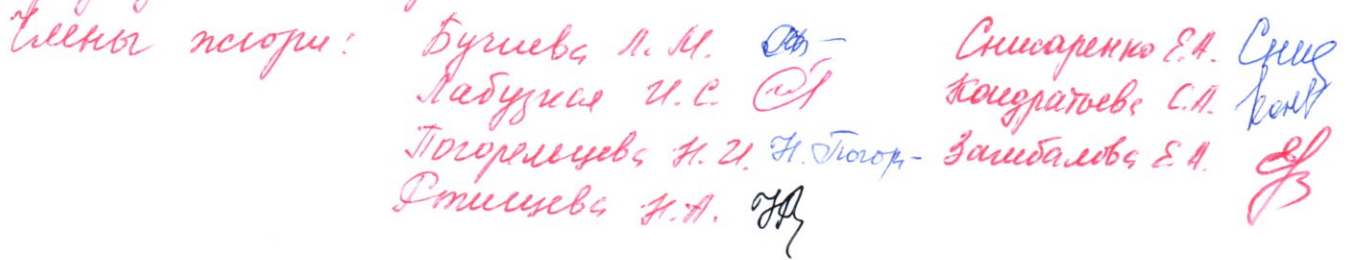 Члены жюри: Бучиева Л. М. Снисаренко Е.А. Снис
Лабузная И. С. Кондратьева С.А. Конд
Погорельцева Н. И. Н. Погор- Замбалова Е. А.
Ртищева Н. А.